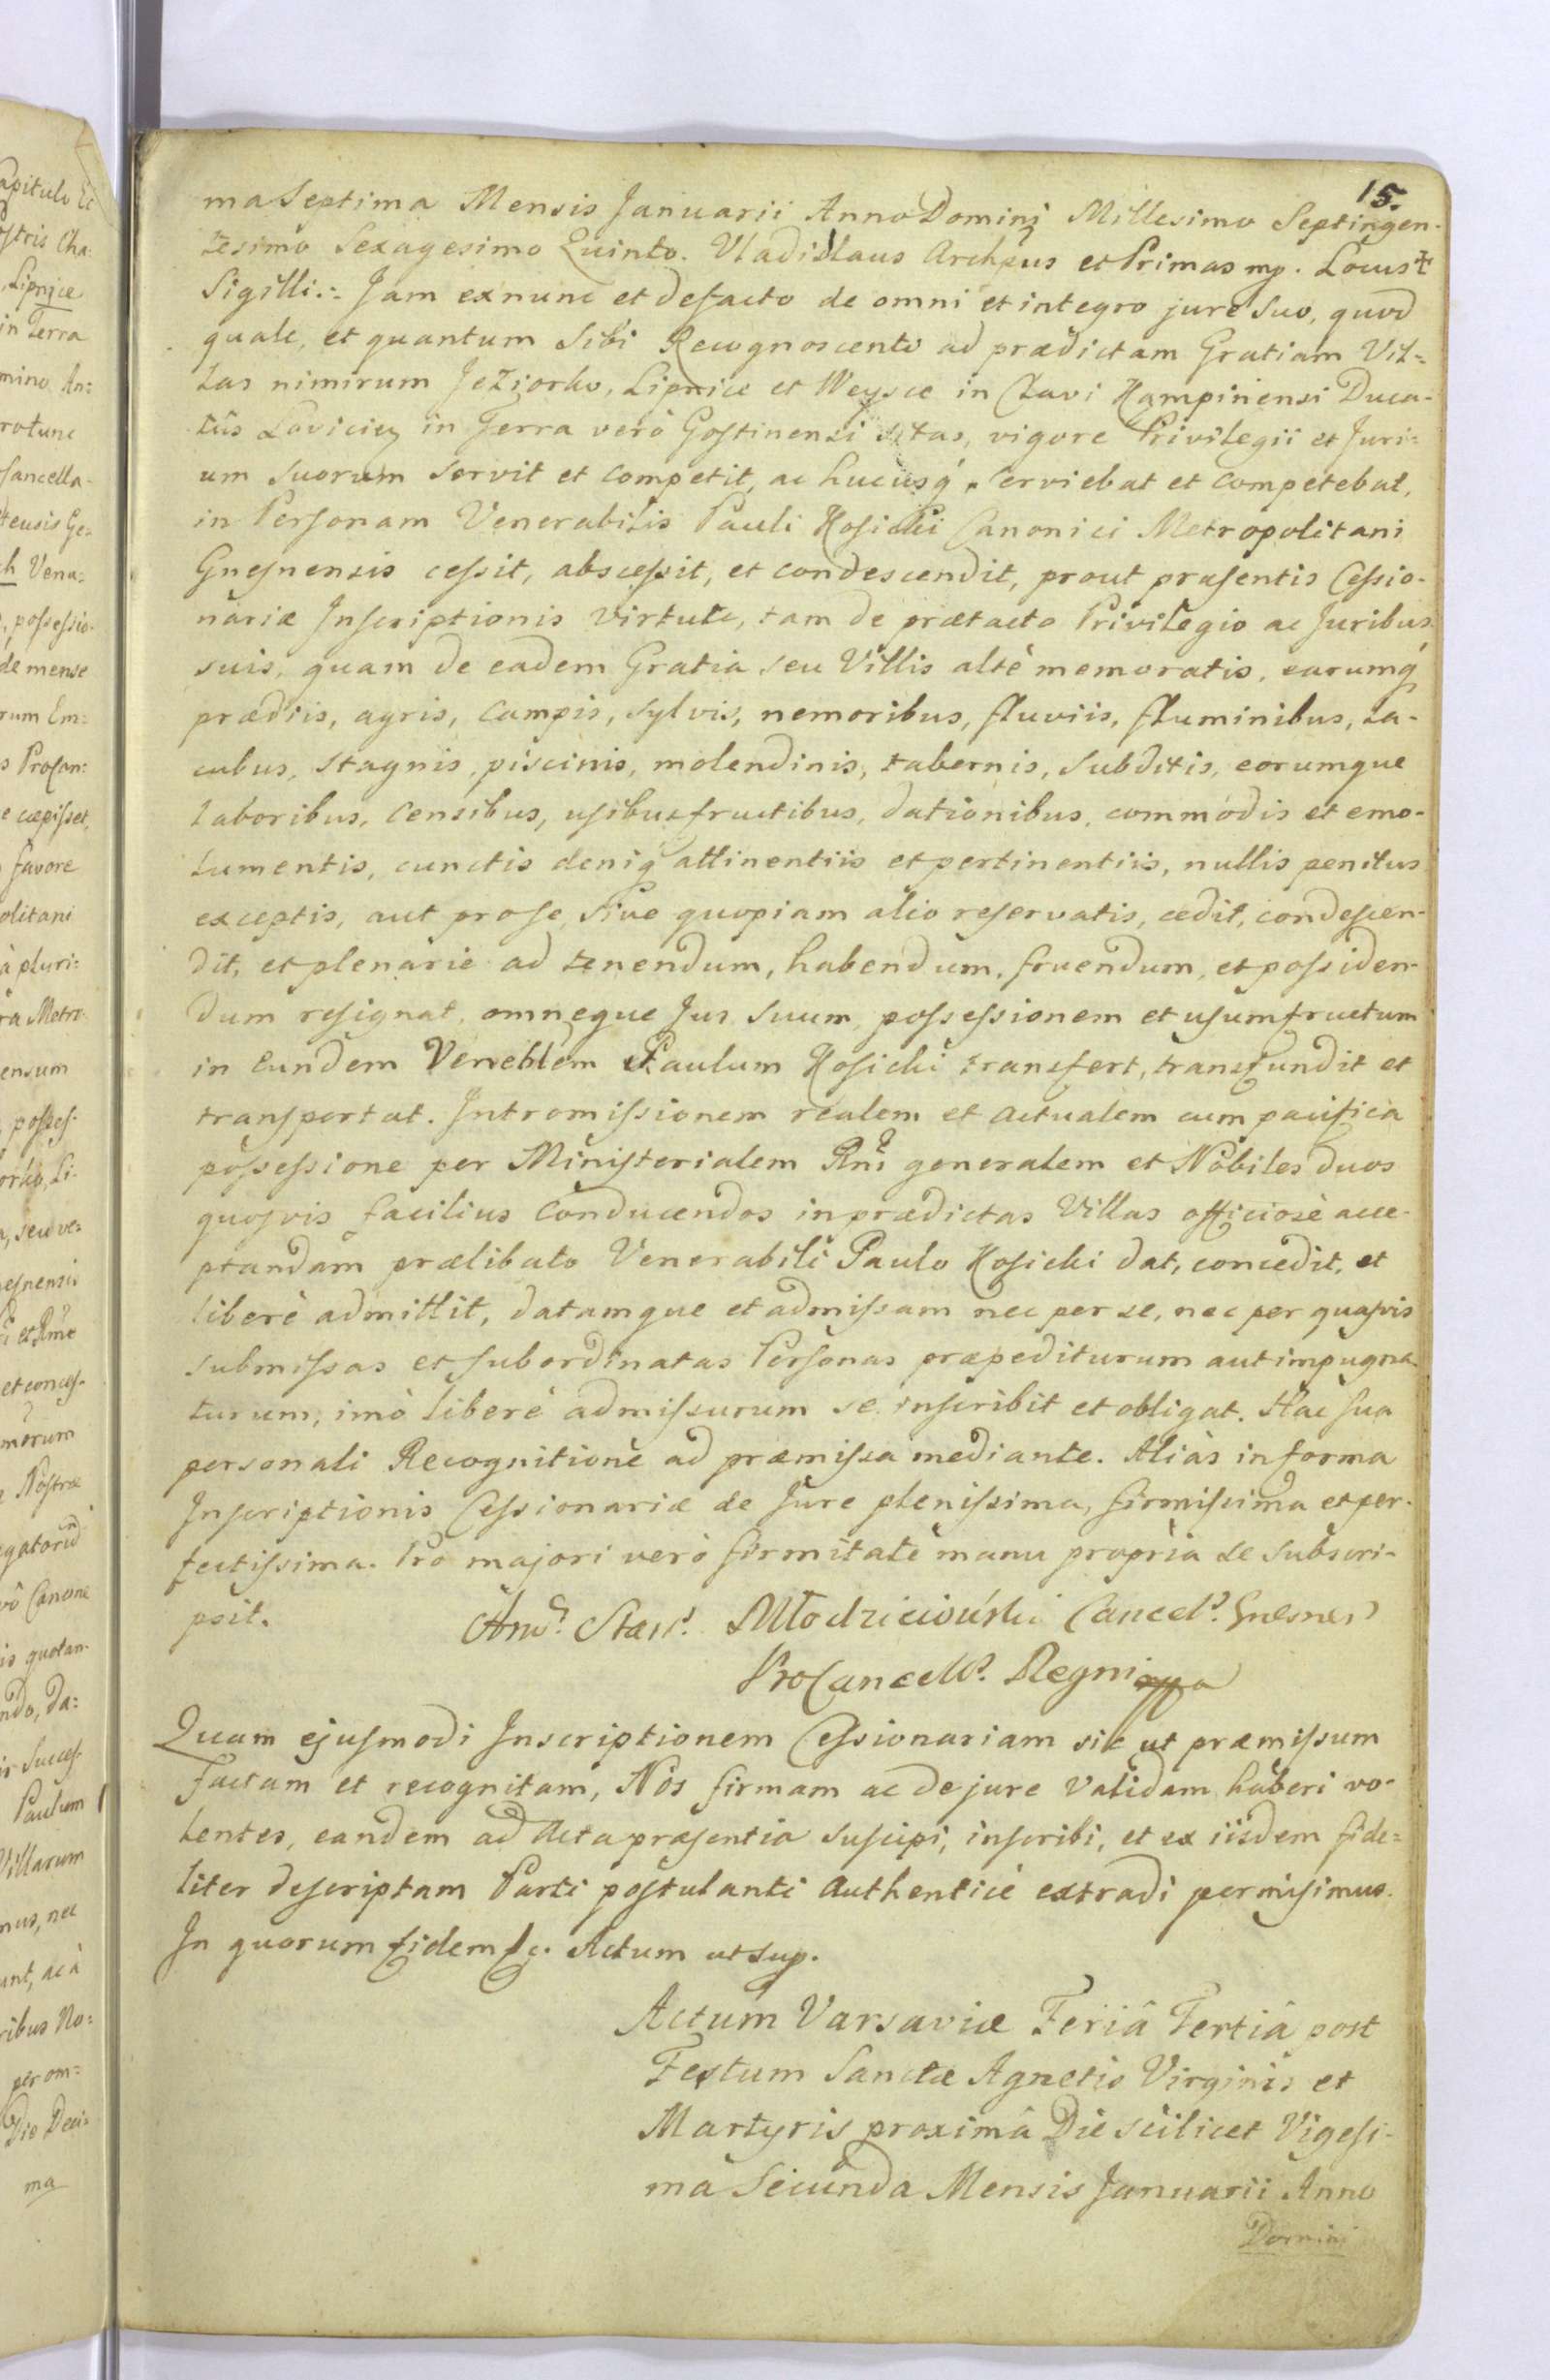 15.
ma Septima Mensis Januarii Anno Domini Millesimo Septingen-
tesimo Sexagesimo Quinto. Vladislaus Archĕpus et Primas mp. Locus ┼
Sigilli.:. Jam ex nunc et de facto de omni et integro jure suo, quod
quale, et quantum Sibi Recognoscenti ad prædictam Gratiam Vil=
las nimirum Jeziorko, Lipnice et Weysce in Clavi Kampinensi Duca-
tûs Lovicien in Terra verò Gostinensi sitas, vigore Privilegii et Juri=
um suorum servit et competit, ac hucusq́ serviebat et competebat,
in Personam Venerabilis Pauli Kosicki Canonici Metropolitani
Gnesnensis cessit, abscessit, et condescendit, prout præsentis Cessio-
nariæ Inscriptionis virtute, tam de prætacto Privilegio ac Juribus
suis, quam de eadem Gratia seu Villis altè memoratis, earumq́
prædiis, agris, campis, sylvis, nemoribus, fluviis, fluminibus, la-
cubus, stagnis, piscinis, molendinis, tabernis, subditis, eorumque
laboribus, censibus, usibusfructibus, dationibus, commodis et emo-
lumentis, cunctis deniq́ attinentiis et pertinentiis, nullis penitus
exceptis, aut pro se, sive quopiam alio reservatis, cedit, condescen-
dit, et plenariè ad tenendum, habendum, fruendum, et possiden-
dum resignat, omneque Jus suum, possessionem et usumfructum
in eundem Venerablem Paulum Kosicki transfert, transfundit et
transportat. Intromissionem realem et actualem cum pacifica
possessione per Ministerialem Rni generalem et Nobiles duos
quosvis facilius conducendos in prædictas Villas officiosè acce-
ptandam prælibato Venerabili Paulo Kosicki dat, concedit, et
liberè admittit, datamque et admissam nec per se, nec per quasvis
submissas et subordinatas Personas præpediturum aut impugna-
turum, imò liberè admissurum se inscribit et obligat. Hac sua
personali Recognitione ad præmissa mediante. Aliàs in forma
Inscriptionis Cessionariæ de Jure plenissima, firmissima et per-
fectissima. Pro majori verò firmitate manu propria se subscri-
psit. Stans. Młodzieiowski Cancel. Gnesnen
ProCancell. Regni
Quam ejusmodi Inscriptionem Cessionariam sic ut præmissum
factam et recognitam, Nos firmam ac de jure validam haberi vo-
lentes, eandem ad Acta præsentia suscipi, inscribi, et ex iisdem fide=
liter descriptam Parti postulanti authenticè extradi permisimus.
In quorum fidem &c. Actum ut sup.
Actum Varsaviæ Feriâ Tertiâ post
Festum Sanctæ Agnetis Virginis et
Martyris proximâ Die scilicet Vigesi-
ma Secunda Mensis Januarii Anno
Domini
apitulo
stris Cha:
Lipnice
in Terra
mino An:
rotunc
Cancella-
Venu=
possessio-
de mense
rum Em=
s Procan:
e cæpisset,
favore
olitani
à pluri=
ra Metro-
ensum
posses-
orko, Li-
seu ve=
esnensis
et Rme
et conces-
morum
Nostræ
egatorũ
vô Canone
is quotan-
ndo, da=
Succes-
Paulum
Villarum
mus, nec
unt, ac à
ribus No=
per om=
Die Deci=
ma